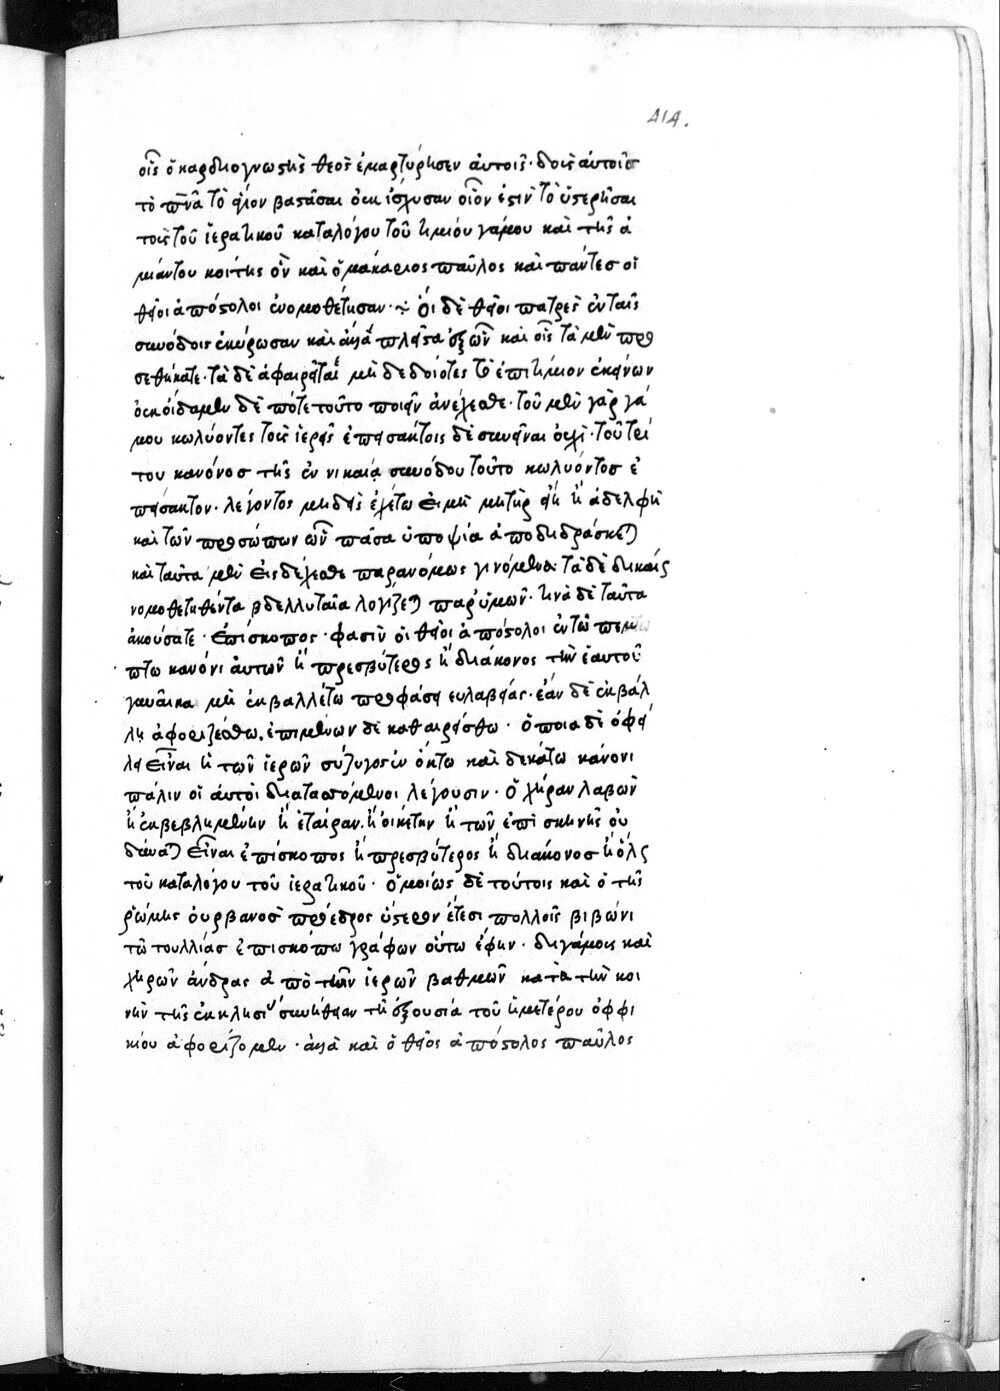 414.
οἷς ὁ καρδιογνώστης θεὸς ἐμαρτύρησεν αὐτοῖς· δοὺς αὐτοῖς
τὸ πνᾶ τὸ ἅγιον βαστᾶσαι οὐκ ἴσχυσαν οἷον ἐστὶν τὸ ὑστερῆσαι
τοὺς τοῦ ἱερατικοῦ καταλόγου τοῦ τιμίου γάμου καὶ τῆς ἀ
μιάντου κοίτης ὃν καὶ ὁ μακάριος παῦλος καὶ πάντες οἱ
θεῖοι ἀπόστολοι ἐνομοθέτησαν· ÷ οἱ δὲ θεῖοι πατρες ἐν ταῖς
συνόδοις ἐκύρωσαν καὶ ἀλλὰ πλεῖστα ἐξ ὧν καὶ οἷς τὰ μὲν προ
σεθήκατε· τὰ δὲ ἀφαιρεῖται μὴ δεδοιότες τὸ ἐπιτίμιον ἐκείνων
οὐκ οἴδαμεν δὲ πότε τοῦτο ποιεῖν ἀνέχεσθε· τοῦ μὲν γὰρ γά
μου κωλύοντες τοὺς ἱερεῖς ἐπεισάκτοις δὲ συνεῖναι οὐχί· τοῦ τρί
του κανόνοσ τῆς ἐν νικαία συνόδου τοῦτο κωλύοντοσ ἐ
πείσακτον· λέγοντος μηδεὶς ἐχέτω εἰ μὴ μητὴρ εἴη ἢ ἀδελφὴ
καὶ τῶν προσώπων ὧν πᾶσα ὑποψία ἀποδιδράσκει
καὶ ταῦτα μὲν εἰσδέχεσθε παρανόμως γινόμενα· τὰ δὲ δικαίως
νομοθετηθέντα βδελλυταῖα λογίζεται παρ' ὑμῶν· τινὰ δὲ ταῦτα
ἀκούσατε· ἐπίσκοπος· φασὶν οἱ θεῖοι ἀπόστολοι ἐν τῶ πεμ
πτω κανόνι αὐτῶν ἢ πρεσβύτερος ἢ διάκονος τὴν ἑαυτοῦ
γυναῖκα μὴ ἐκβαλλέτω προφάσει ευλαβείας· ἐὰν δὲ ἐκβάλ
λη ἀφοριζέσθω. ἐπιμένων δὲ καθαιρείσθω· ὁποια δὲ ὀφεί
λει εἶναι ἡ τῶν ἱερῶν σύζυγος ἐν ὀκτω καὶ δεκάτω κάνονι
πάλιν οἱ αὐτοὶ διαταττόμενοι λέγουσιν· ὁ χήραν λαβὼν
ἢ ἐκβεβλημένην ἢ ἑταίραν. ἢ οἰκέτην ἢ τῶν ἐπὶ σκηνῆς οὐ
δύναται εἶναι ἐπίσκοπος ἢ πρεσβύτερος ἢ διάκονοσ ἢ ὅλως
τοῦ καταλόγου τοῦ ἱερατικοῦ· ὁμοίως δὲ τούτοις καὶ ὁ τῆς
ῥώμης οὐρβανοσ πρόεδρος ὕστερον ἔτεσι πολλοῖς βιβώνι
τῶ τουλλίασ ἐπισκόπω γράφων οὕτω ἔφην· διγάμους καὶ
χηρῶν ἀνδρας ἀπὸ τῶν ἱερῶν βαθμῶν κατὰ τὴν κοι
νὴν τῆς ἐκκλησι συνήθειαν τῆ ἐξουσία τοῦ ἡμετέρου ὀφφι
κίου ἀφορίζομεν· ἀλλὰ καὶ ὁ θεῖος ἀπόστολος παῦλος